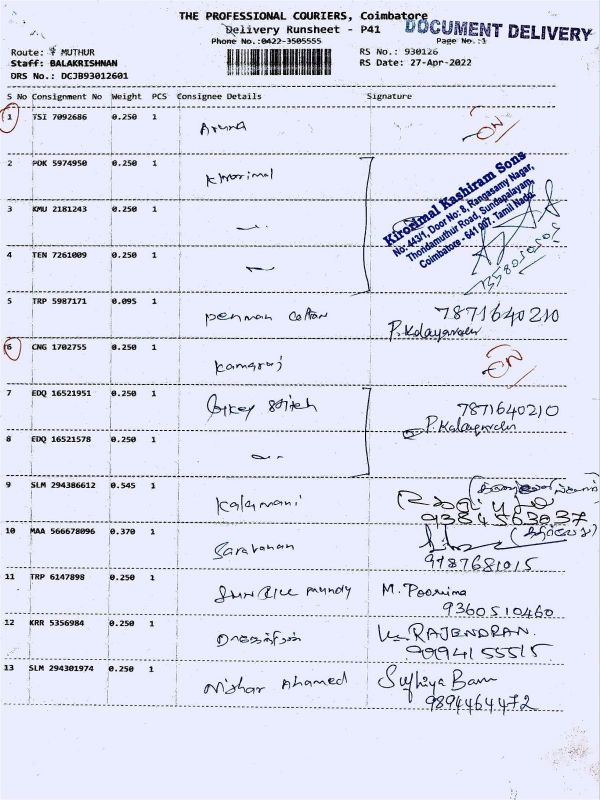 THE PROFESSIONAL COURIERS, Coimbatore
DOCUMENT DELIVERY
Delivery Runsheet - P41
Phone No.:0422-3505555
Page No.:1
Route: MUTHUR
RS No.: 930126
Staff: BALAKRISHNAN
RS Date: 27-Apr-2022
DRS No.: DCJB93012601
S No Consignment No Weight PCS Consignee Details Signature
1 TSI 7092686 0.250 1 Aruna
2 POK 5974950 0.250 1 Kirorimal
Kirorimal Kashiram Sons
No: 443/1, Door No: 8, Rangasamy Nagar,
Thondamuthur Road, Sundapalayam,
Coimbatore - 641 007. Tamil Nadu.
3 KMU 2181243 0.250 1
4 TEN 7261009 0.250 1
5 TRP 5987171 0.095 1 Penman Cotton 7871640210
6 CNG 1702755 0.250 1 Kamaraj
7 EDQ 16521951 0.250 1 7871640210
8 EDQ 16521578 0.250 1
9 SLM 294386612 0.545 1 Kalamani
9384563037
10 MAA 566678096 0.370 1 Saravanan
9787681015
11 TRP 6147898 0.250 1 M. Poornima
9360510460
12 KRR 5356984 0.250 1 RAJENDRAN.
9994155515
13 SLM 294301974 0.250 1 Nishar Ahamed Sufhiya Banu
9894464472